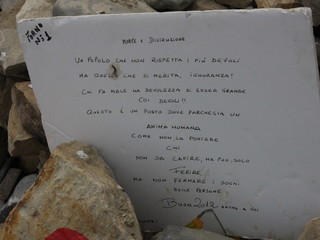 MORTE E DISTRUZIONE
UN POPOLO CHE NON RISPETTA I PIÙ DEBOLI
HA QUELLO CHE SI MERITA, IGNORANZA!
CHI FA MALE HA DEBOLEZZA DI ESSER GRANDE
COI DEBOLI!!
QUESTO È UN POSTO DOVE PARCHEGGIA UN
ANIMA HUMANA
COME NON LA POTERE
CHI
NON SA CAPIRE, MA PUÒ, SOLO
FERIRE,
MA NON FERMARE I SOGNI
DELLE PERSONE!
BUON 2012 A VOI
N° 1